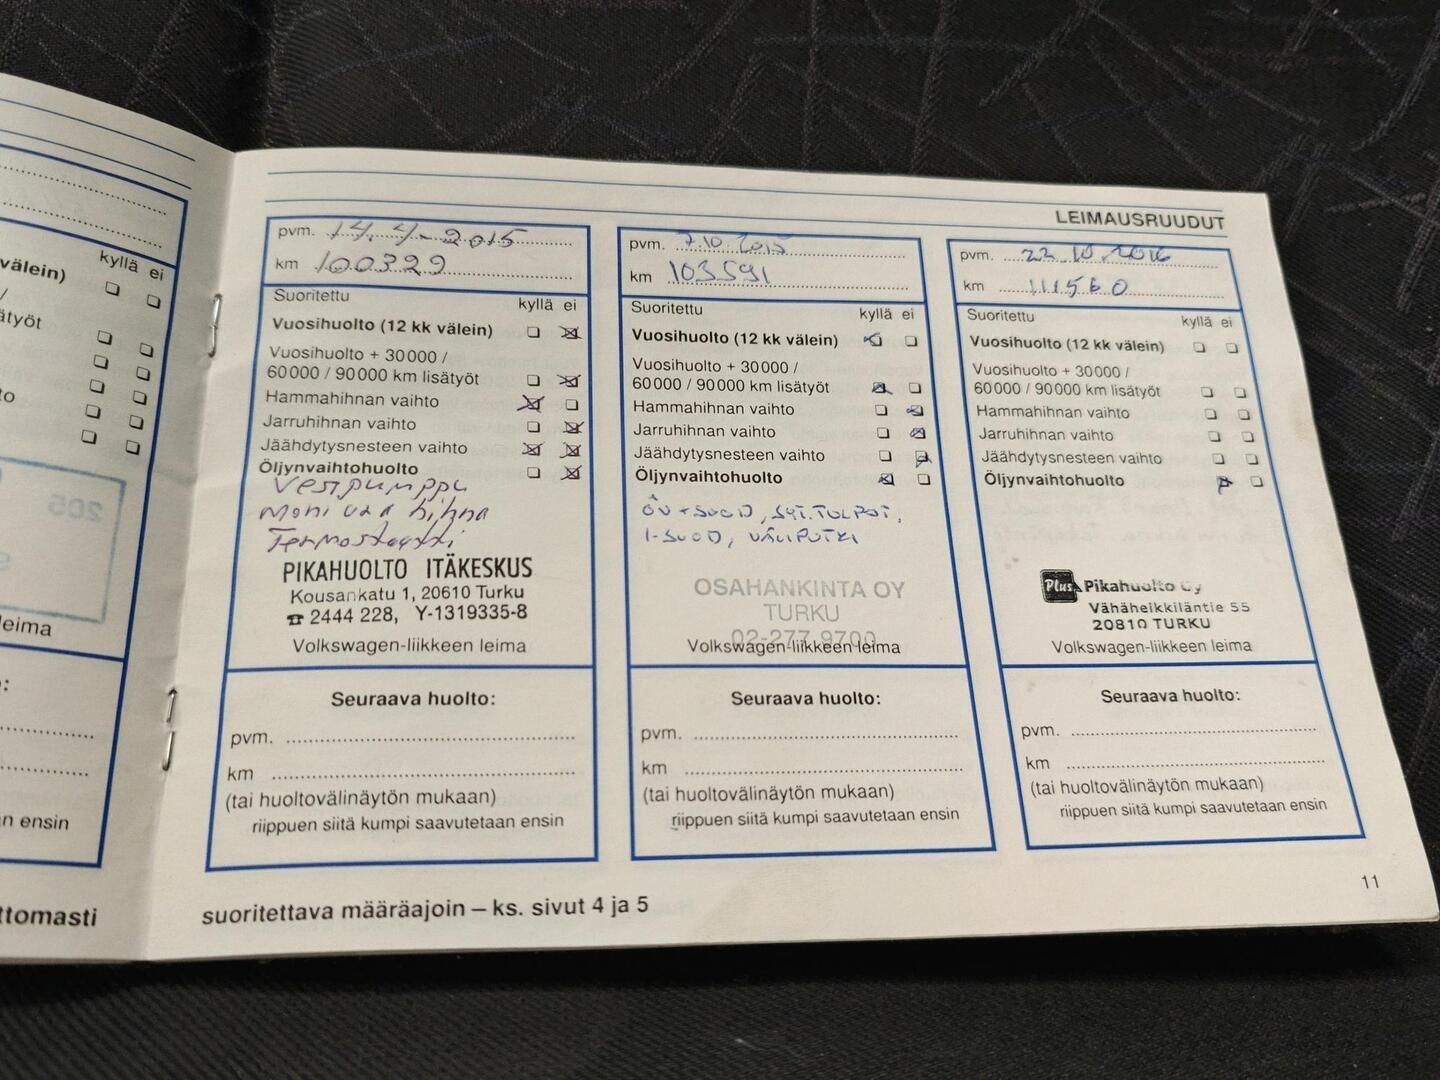 välein)
kyllä ei
LEIMAUSRUUDUT
pvm. 14.4-2015
km 100329
Suoritettu kyllä ei
Vuosihuolto (12 kk välein)
Vuosihuolto + 30000 /
60000 / 90000 km lisätyöt
Hammahihnan vaihto
Jarruhihnan vaihto
Jäähdytysnesteen vaihto
Öljynvaihtohuolto
Vesipumppu
moniura hihna
Termostaatti
PIKAHUOLTO ITÄKESKUS
Kousankatu 1, 20610 Turku
☎ 2444 228, Y-1319335-8
Volkswagen-liikkeen leima
Seuraava huolto:
pvm.
km
(tai huoltovälinäytön mukaan)
riippuen siitä kumpi saavutetaan ensin
pvm. 7.10.2015
km 103591
Suoritettu kyllä ei
Vuosihuolto (12 kk välein)
Vuosihuolto + 30000 /
60000 / 90000 km lisätyöt
Hammahihnan vaihto
Jarruhihnan vaihto
Jäähdytysnesteen vaihto
Öljynvaihtohuolto
ÖV+SUOD, SYT.TULPAT,
I-SUOD, VÄLIPUTKI
OSAHANKINTA OY
TURKU
02-277 9700
Volkswagen-liikkeen leima
Seuraava huolto:
pvm.
km
(tai huoltovälinäytön mukaan)
riippuen siitä kumpi saavutetaan ensin
pvm. 22.10.2016
km 111560
Suoritettu kyllä ei
Vuosihuolto (12 kk välein)
Vuosihuolto + 30000 /
60000 / 90000 km lisätyöt
Hammahihnan vaihto
Jarruhihnan vaihto
Jäähdytysnesteen vaihto
Öljynvaihtohuolto
Plus Pikahuolto Oy
Vähäheikkiläntie 55
20810 TURKU
Volkswagen-liikkeen leima
Seuraava huolto:
pvm.
km
(tai huoltovälinäytön mukaan)
riippuen siitä kumpi saavutetaan ensin
suoritettava määräajoin – ks. sivut 4 ja 5
11